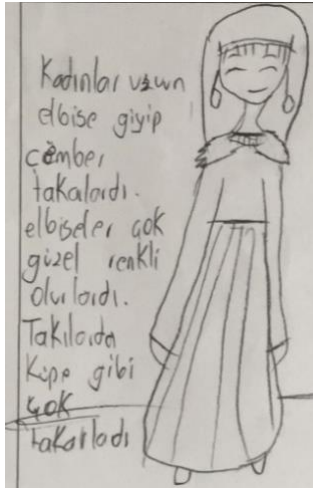 Kadınlar uzun
elbise giyip
çember
takalardı.
elbiseler çok
güzel renkli
olurlardı.
Takılarda
Küpe gibi
çok
takarladı